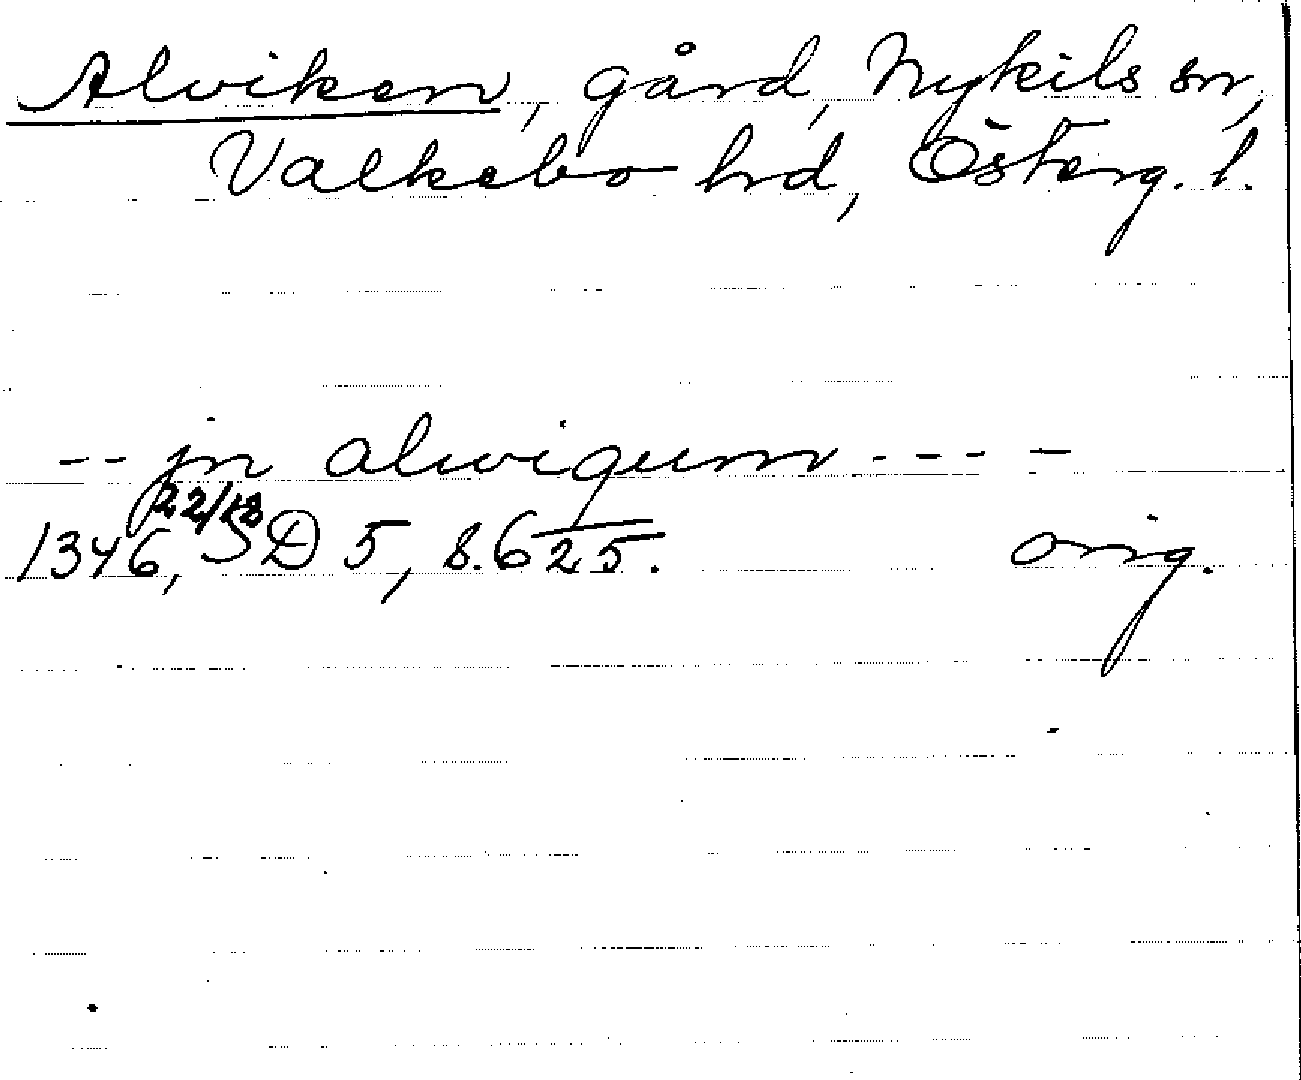 Alviken, gård, Nykils sn,
Valkebo hd, Österg. l.
-- jn alwigum - - - - -
22/12
1346, SD 5, s. 625. orig.